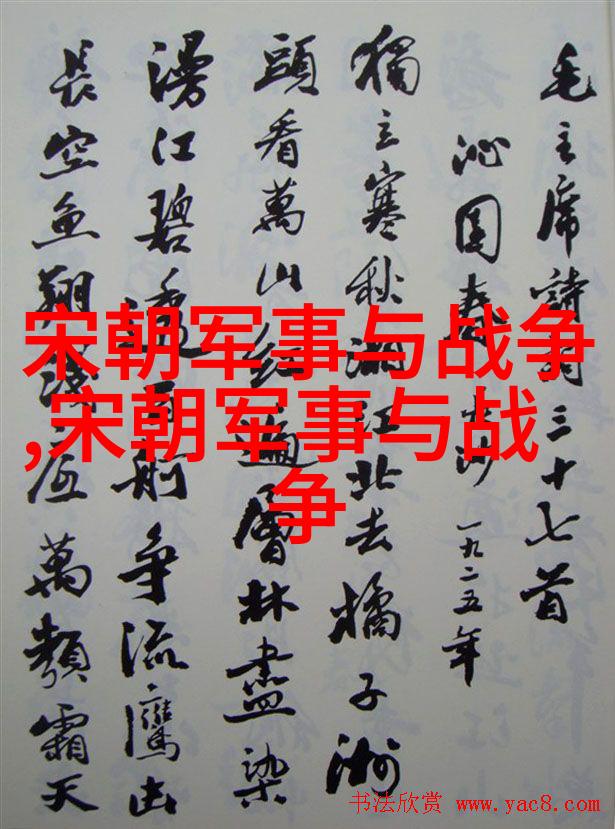 毛主席詩詞三十七首
沁园春 长沙 一九二五年
獨立寒秋湘江北去橘子洲
頭看萬山红遍層林盡染
漫江碧透百舸争流鷹击
長空鱼翔淺底萬類霜天
宋朝军事与战争
,宋朝军事与战
争
书法欣赏 www.yac8.com